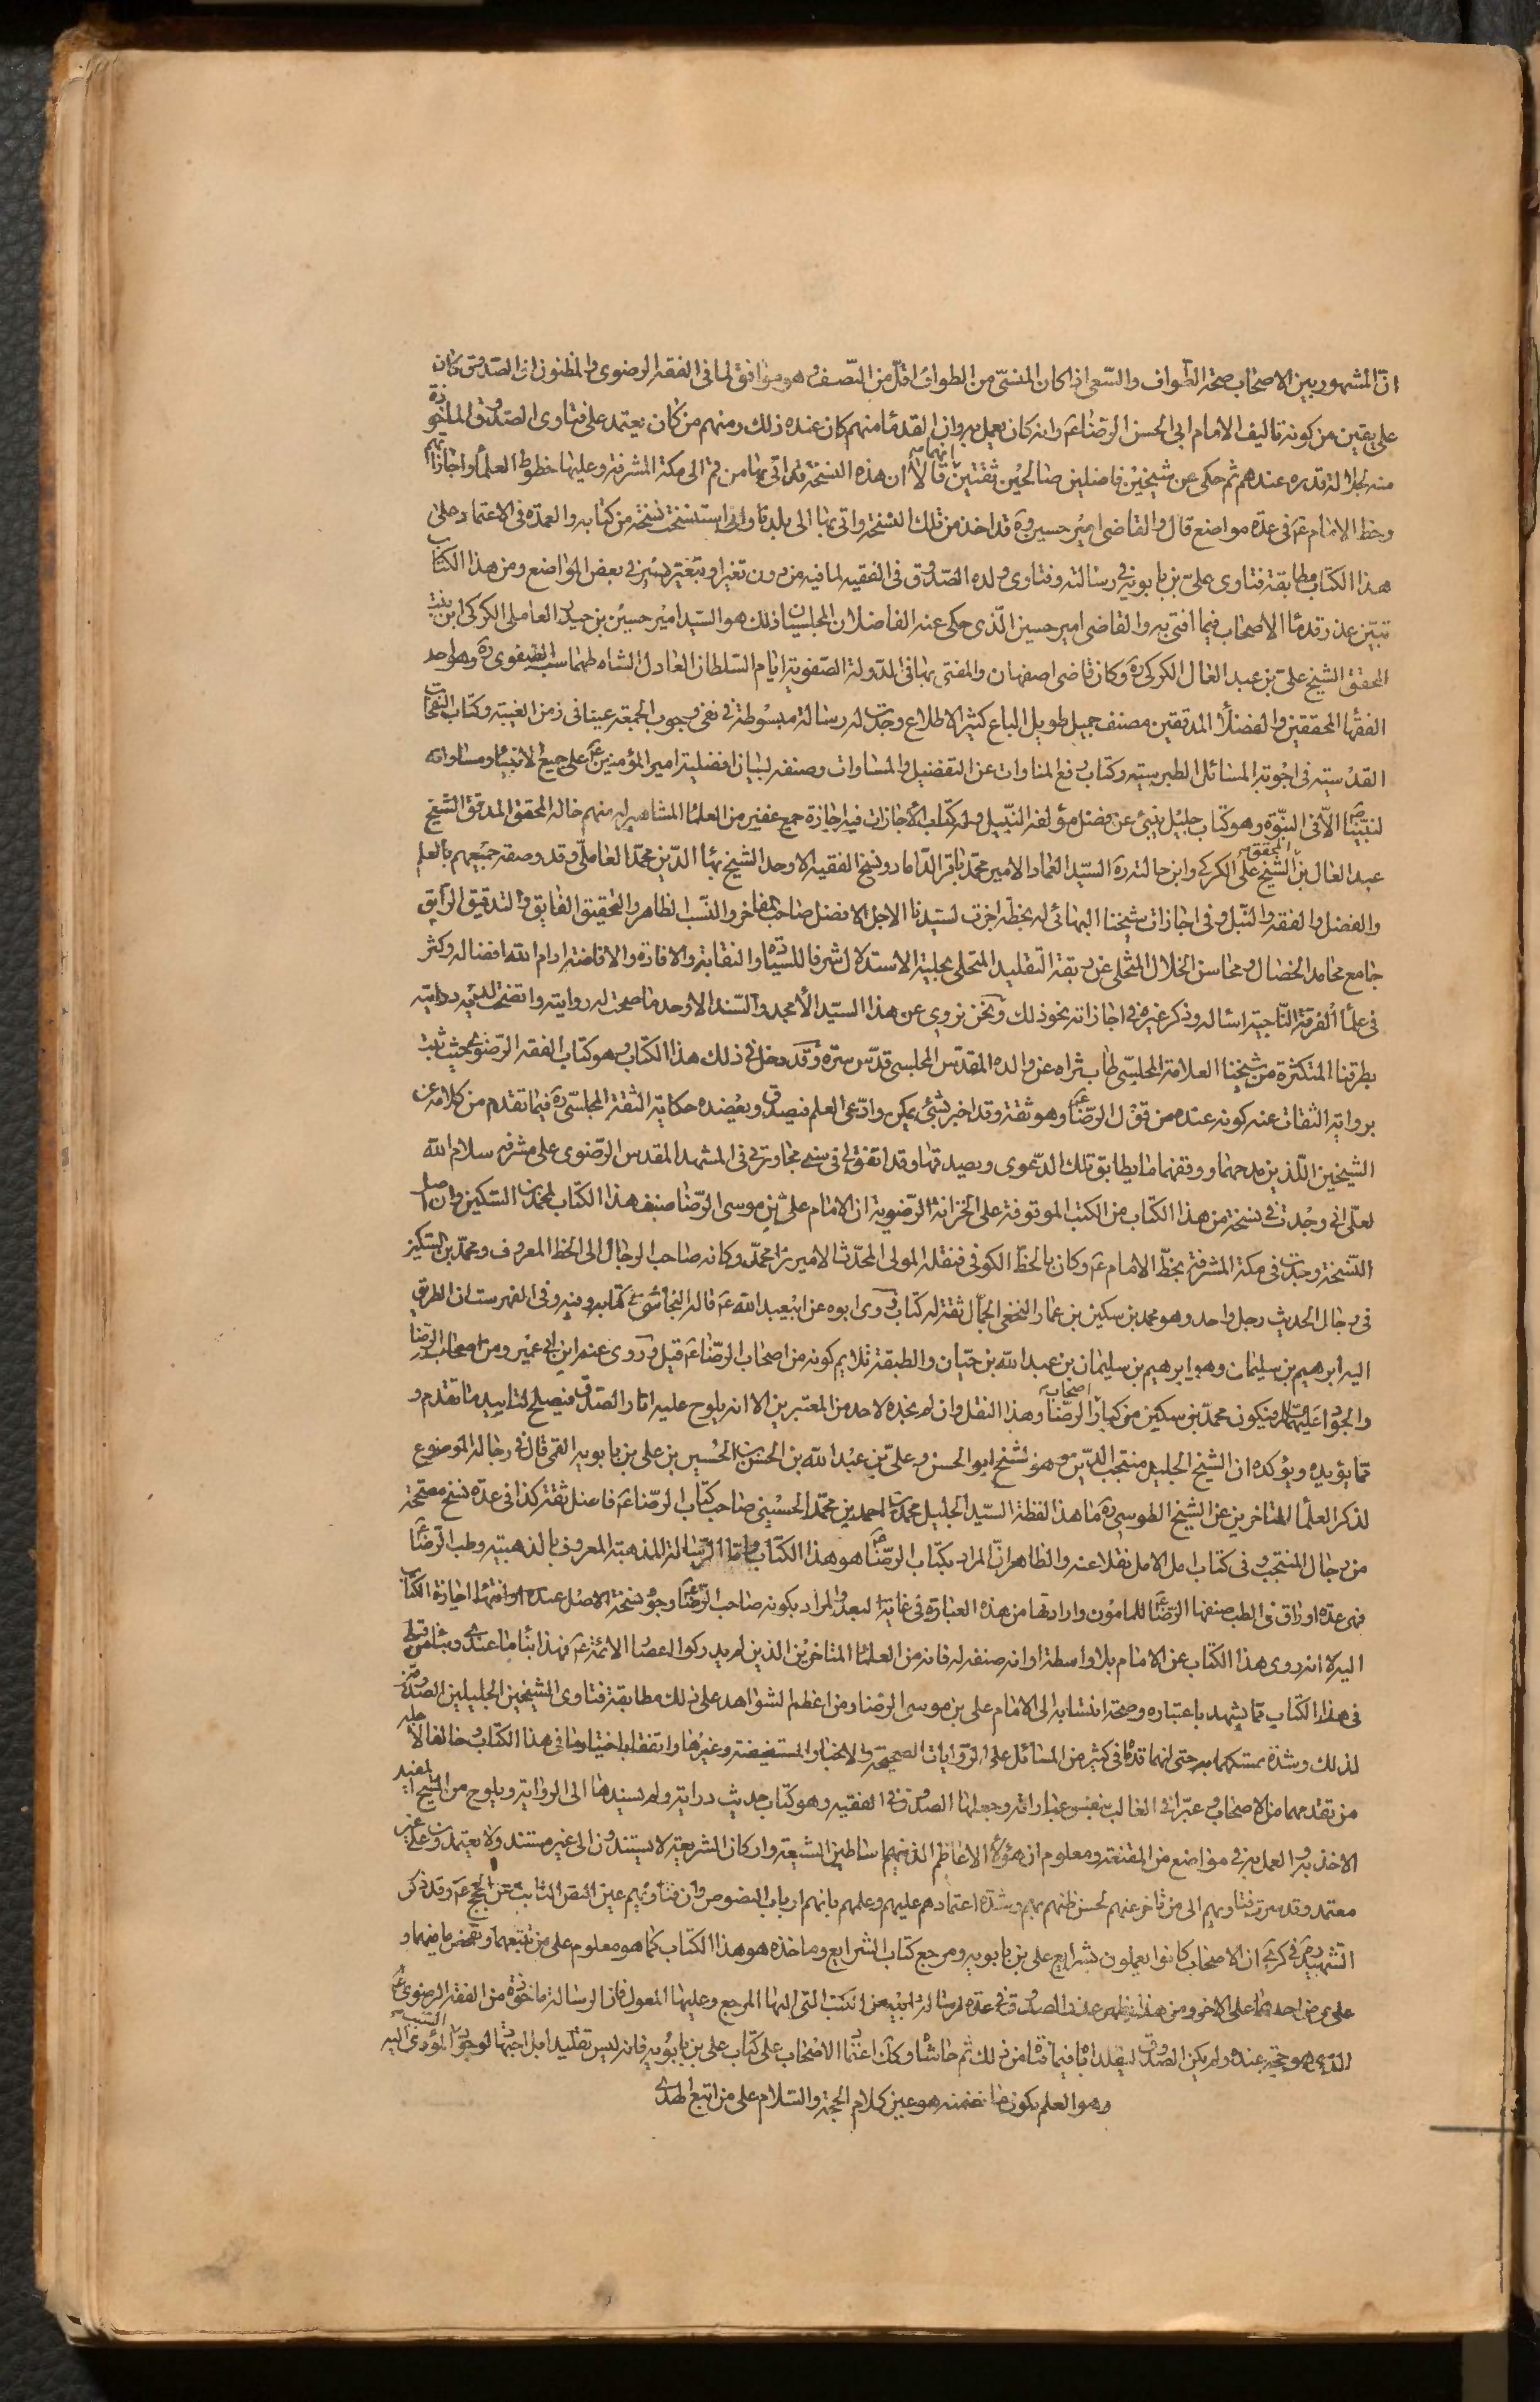 انّ المشهور بين الاصحاب صحة الطواف والسّعى اذا كان المنسىّ من الطواف اقلّ من النّصف وهو موافق لما فى الفقه الرضوى والمظنون ان الصدوق كان
على يقين من كونه تاليف الامام ابى الحسن الرضا عَ وانه كان يعمل به وان القدماء منهم كان عنده ذلك ومنهم من كان يعتمد على فتاوى الصدوق الماخوذة
منه لجلالة قدره عندهم ثم حكى عن شيخين فاضلين صالحين ثقتين انهما قالا ان هذه النسخة قد اتى بها من قم الى مكة المشرفة وعليها خطوط العلماء واجازاتهم
وخط الامام عَ فى عدة مواضع قال والقاضى امير حسين ره قد اخذ من تلك النسخة واتى بها الى بلدنا وانى استنسخت نسخة من كتابه والعمدة فى الاعتماد على
هذا الكتاب مطابقة فتاوى على بن بابويه فى رسالته وفتاوى ولده الصدوق فى الفقيه لما فيه من دون تغير او بتغير يسير فى بعض المواضع ومن هذا الكتاب
تبيّن عذر قدماء الاصحاب فيما افتى به والقاضى امير حسين الّذى حكى عنه الفاضلان المجلسيان ذلك هو السّيد امير حسين بن حيدر العاملى الكركى ابن بنت
المحقق الشيخ على بن عبد العال الكركى ره وكان قاضى اصفهان والمفتى بها فى الدولة الصّفوية ايام السّلطان العادل الشاه طهماسب الصفوى ره وهو احد
الفقهاء المحققين والفضلاء المدققين مصنف جميل طويل الباع كثير الاطلاع وجدت له رسالة مبسوطة فى نفى وجوب الجمعة عينا فى زمن الغيبة وكتاب النفحات
القدسيّه فى اجوبة المسائل الطبرسيه وكتاب دفع المناوات عن التفضيل والمساوات وصنفه لبيان افضلية امير المؤمنين عَ على جميع الانبياء ومساواته
لنبيّنا صَ الّا فى النبّوة وهو كتاب جليل ينبئ عن فضل مؤلفه النّبيل وله كتاب الأجازات فيه اجازة جمع غفير من العلماء المشاهير له منهم خاله المحقق المدقق الشيخ
عبد العال بن المحقق الشيخ على الكركى وابن خالته ره السيّد العماد الامير محمّد باقر الدّاماد وشيخ الفقيه الاوحد الشيخ بهاء الدّين محمّد العاملىّ وقد وصفه جميعهم بالعلم
والفضل والفقه والنّبل وفى اجازات شيخنا البهائى له بخطه اجزت لسيّدنا الاجل الافضل صاحب المفاخر والنّسب الطاهر والتحقيق الفايق والتدقيق الرّايق
جامع محامد الخصال ومحاسن الخلال المتخلى عن ربقة التقليد المتحلى بحلية الاستدلال شرفا للسيادة والنقابة والافادة والافاضة ادام الله افضاله وكثر
فى علماء الفرقة النّاجية امثاله وذكر غيره فى اجازاته نحو ذلك ونحن نروى عن هذا السيّد الأمجد والسّند الاوحد ما صحت له روايته واتضحت لديه درايته
بطرقنا المتكثرة من شيخنا العلامة المجلسىّ طاب ثراه عن والده المقدّس المجلسى قدّس سرّه وقد دخل فى ذلك هذا الكتاب وهو كتاب الفقه الرّضوى بحيث ثبت
برواية الثقات عنه كونه عنده من قول الرضا عَ وهو ثقة وقد اخبر بشئ يمكن وادّعى العلم فيصدق ويعضده حكاية الثقة المجلسىّ ره فيما تقدم من كلامه عن
الشيخين اللّذين مدحهما ووثقهما ما يطابق تلك الدّعوى ويصدقها وقد اتفق لى فى سنى مجاورتى فى المشهد المقدس الرّضوى على مشرفه سلام الله
لعلّى انى وجدت فى نسخة من هذا الكتاب من الكتب الموقوفة على الخزانة الرّضوية ان الامام علىّ بن موسى الرّضا صنف هذا الكتاب لمحمّد بن السّكين وان اصل
النّسخة وجدت فى مكة المشرفة بخطّ الامام عَ وكان بالخط الكوفى فنقله المولى المحدّث الاميرزا محمّد وكانه صاحب الرجال الى الخط المعروف ومحمد بن السّكين
فى رجال الحديث رجل واحد وهو محمد بن سكين بن عمار النخعى الجمّال ثقة له كتاب روى ابوه عن ابى عبد الله عَ قاله النجاشىّ فى كتابه وفيه وفى الفهرست ان الطريق
اليه ابرهيم بن سليمان وهو ابرهيم بن سليمان بن عبد الله بن حيّان والطبقة تلايم كونه من اصحاب الرضا عَ قيل وروى عنه ابن ابى عمير ومن اصحاب الرّضا
والجواد عليهما السّلام فيكون محمّد بن سكين من كبار اصحاب الرّضا وهذا النقل وان لم نجده لاحد من المعتبرين الا انه يلوح عليه اثار الصّدق فيصلح لتاييد ما تقدم و
ممّا يؤيده ويؤكده ان الشيخ الجليل منتجب الدّين وهو شيخ ابو الحسن على بن عبيد الله بن الحسن بن الحسين بن على بن بابويه القمى قال فى رجاله الموضوع
لذكر العلماء المتاخرين عن الشيخ الطوسى ره ما هذا لفظه السيّد الجليل محمّد بن احمد بن محمّد الحسينى صاحب كتاب الرّضا عَ فاضل ثقة كذا فى عدة نسخ مصححة
من رجال المنتجب وفى كتاب امل الامل نقلا عنه والظاهر انّ المراد بكتاب الرّضا عَ هو هذا الكتاب وامّا الرّسالة المذهبة المعروف بالذهبية وطب الرضا عَ
فهى عدة اوراق فى الطب صنفها الرّضا عَ للمامون وارادتها من هذه العبارة فى غاية البعد والمراد بكونه صاحب الرّضا وجود نسخة الاصل عنده او انتهاء اجازة الكتاب
اليه لا انه روى هذا الكتاب عن الامام بلا واسطة او انه صنفه له فانه من العلماء المتاخرين الذين لم يدركوا اعصار الائمة عَ فهذا ابناء ما عندى وبناء من
فى هذا الكتاب مما يشهد باعتباره وصحة انتسابه الى الامام على بن موسى الرضا ومن اعظم الشواهد على ذلك مطابقة فتاوى الشيخين الجليلين الصدوقين
لذلك وشدة تمسكهما به حتى انهما قدماه فى كثير من المسائل على الروايات الصحيحة والاخبار المستفيضة وغيرها واتفقا باختيار ما فى هذا الكتاب وخالفا لاجله
من تقدمهما من الاصحاب وعبّرا فى الغالب بنفس عباراته وجعلها الصدوق فى الفقيه وهو كتاب حديث دراية ولم يسندها الى الرواية ويلوح من الشيخ المفيد
الاخذ به والعمل به فى مواضع من المقنعة ومعلوم ان هؤلاء الاعاظم الذينهم اساطين الشيعة واركان الشريعة لا يستندون الى غير مستند ولا يعتمدون على غير
معتمد وقد سرت فتاويهم الى من تاخر عنهم لحسن ظنهم بهم وشدة اعتمادهم عليهم وعلمهم بانهم ارباب النصوص وان فتاويهم عين النص الثابت عن الحجج عَ وقد ذكر
الشهيد ره فى كرى ان الاصحاب كانوا يعملون بشرايع على بن بابويه ومرجع كتاب الشرايع وماخذه هو هذا الكتاب كما هو معلوم على من تتبعهما وتفحص ما فيهما و
على عرض احدهما على الاخر ومن هذا يظهر عذر الصدوق فى عده لرسالة ابيه من الكتب التى اليها المرجع وعليها المعول فان الرسالة ماخوذة من الفقه الرضوى عَ
الذى هو حجة عنده ولم يكن الصدوق ليقلد اباه فيما افتاه من ذلك ثم حاشاه وكك اعتماد الاصحاب على كتاب على بن بابويه فانه ليس تقليدا بل اجتهاد لوجود السبب المؤدى اليه
وهو العلم بكون ما تضمنه هو عين كلام الحجة والسّلام على من اتبع الهدى